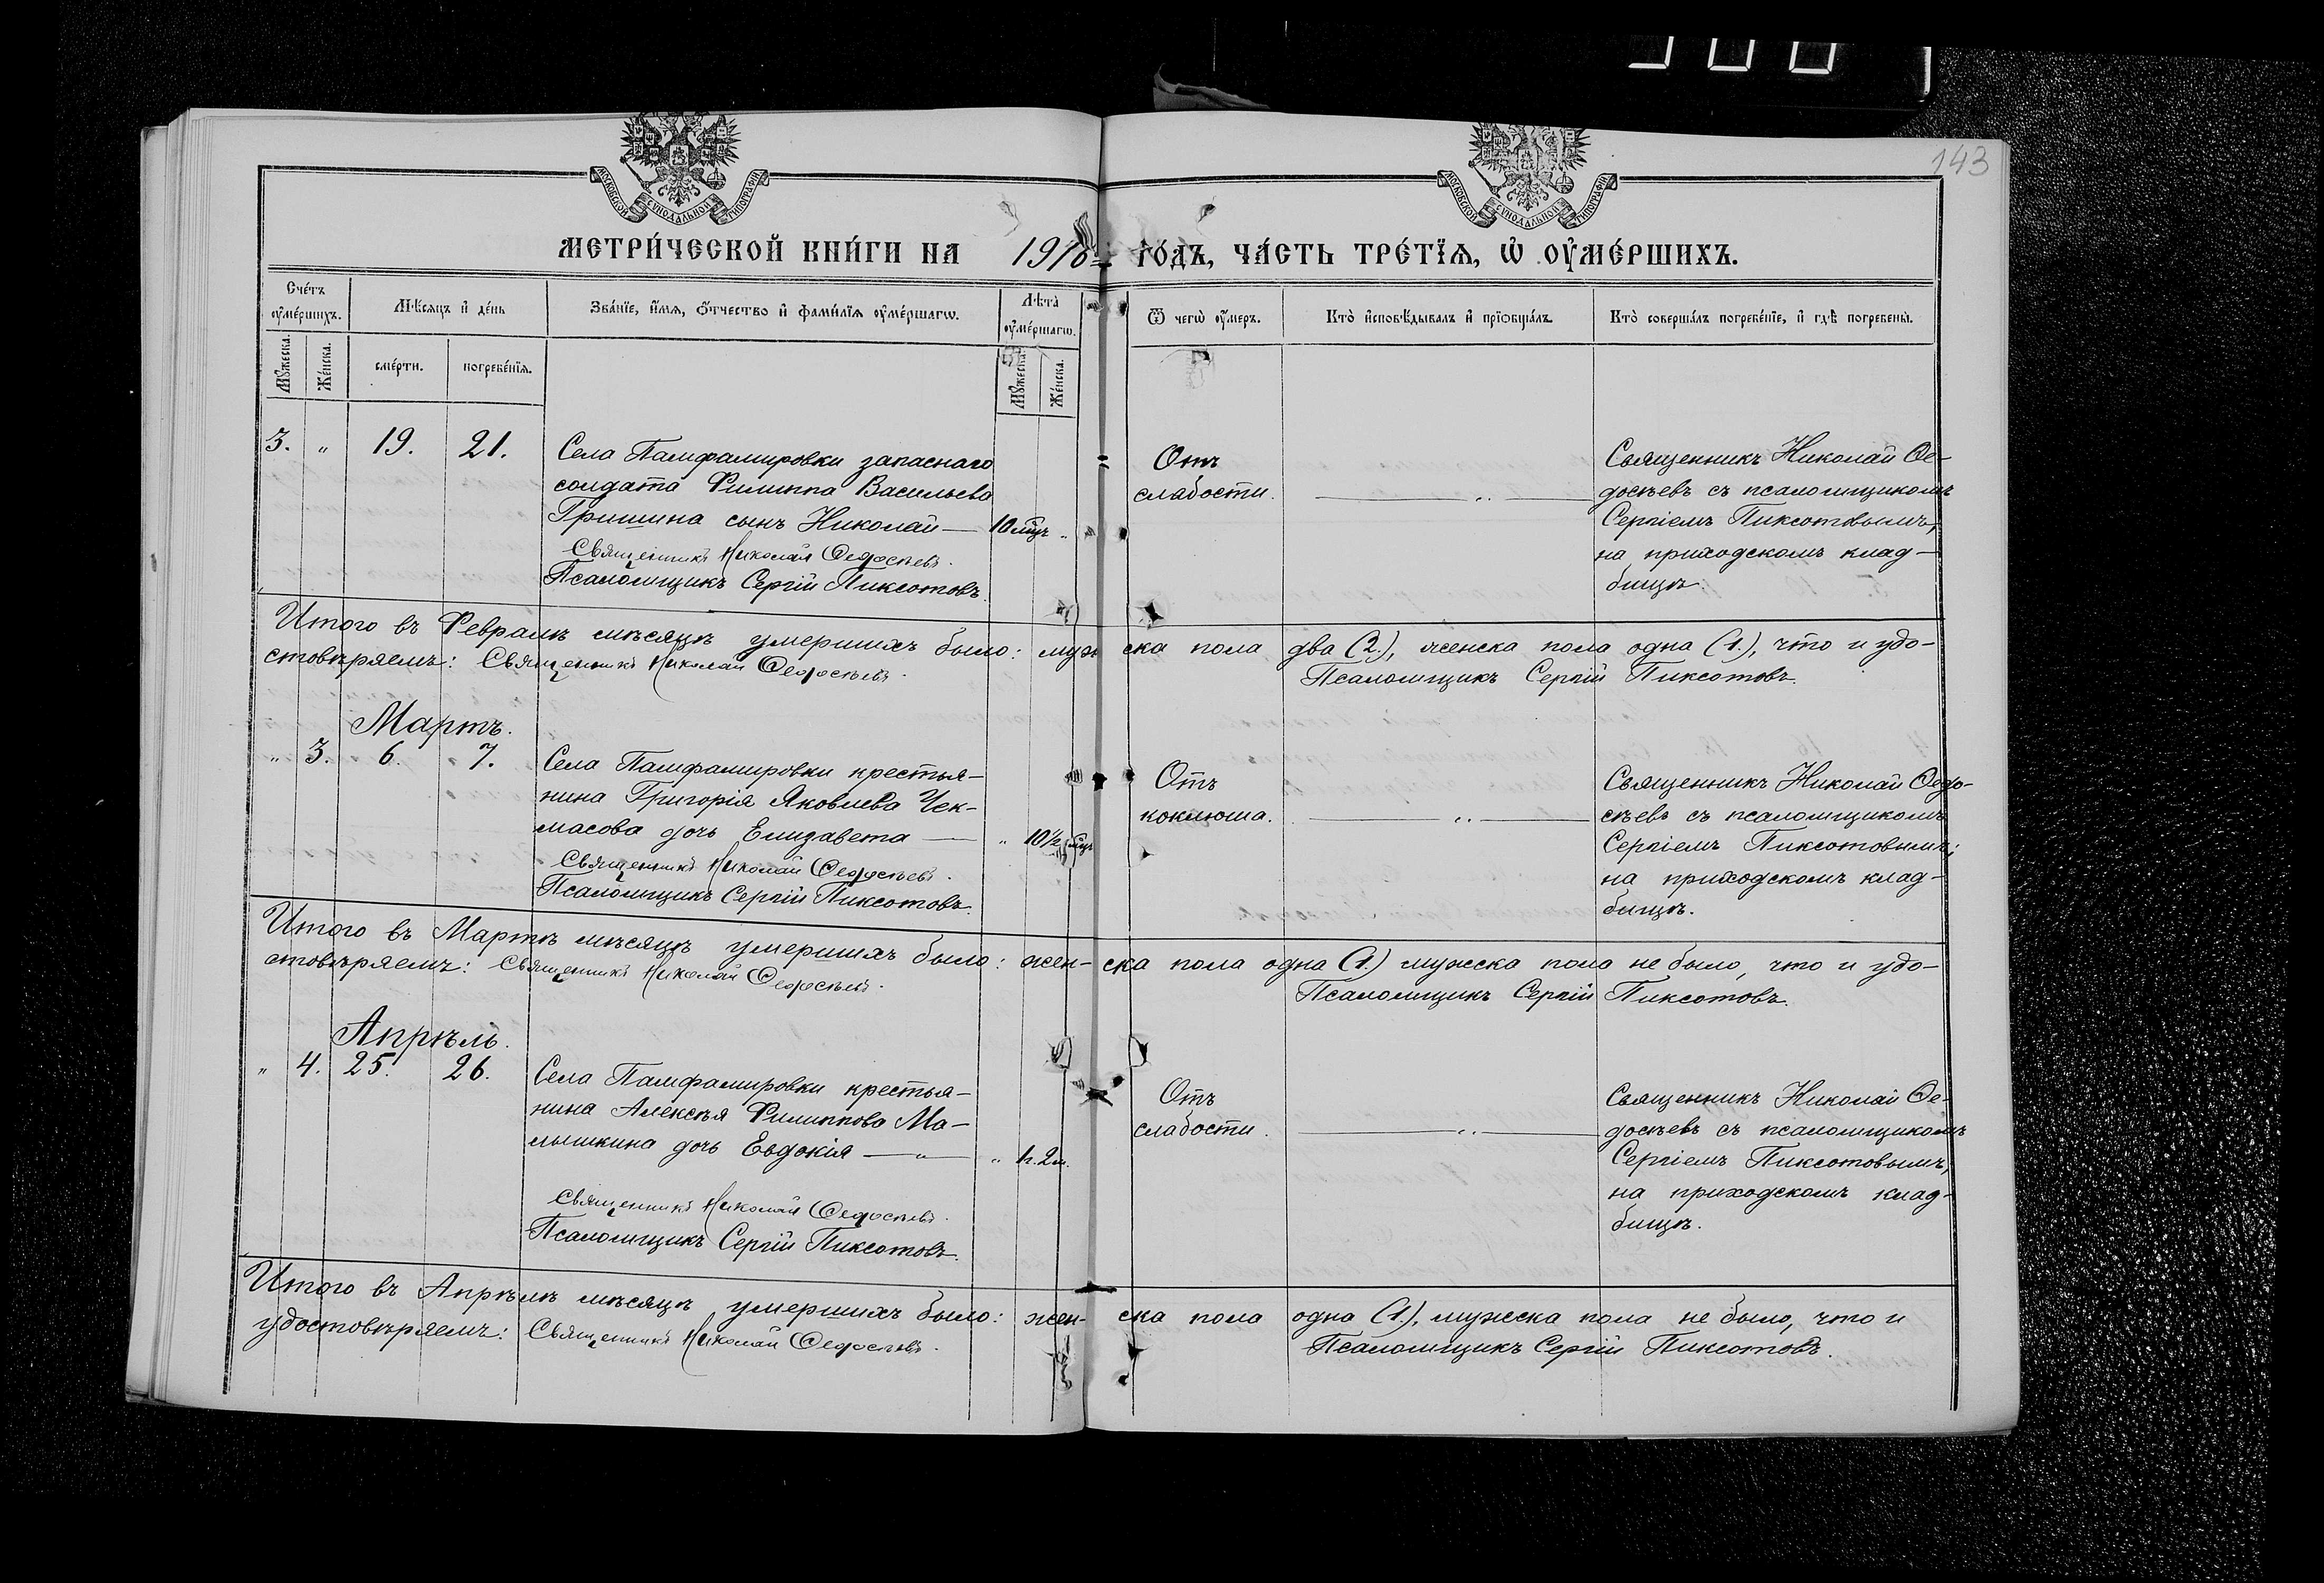 143
МОСКОВСКОЙ СѴНОДАЛЬНОЙ ТИПОГРАФІИ
МОСКОВСКОЙ СѴНОДАЛЬНОЙ ТИПОГРАФІИ
МЕТРИ́ЧЕСКОЙ КНИ́ГИ НА 1910 ГО́ДЪ, ЧА́СТЬ ТРЕ́ТЇѦ, Ѡ҆ ОУ҆МЕ́РШИХЪ.
Сче́тъ оу҆ме́ршихъ.
Мѣ́сѧцъ и҆ де́нь
Зва́нїе, и҆́мѧ, ѻ҆́тчество и҆ фамі́лїѧ оу҆ме́ршагѡ.
Лѣ́та оу҆ме́ршагѡ.
Ѿ чегѡ̀ оу҆́меръ.
Кто̀ и҆сповѣ́дывалъ и҆ прїѡбща́лъ.
Кто̀ соверша́лъ погребе́нїе, и҆ гдѣ̀ погребены̀.
Мꙋ́жеска.
Же́нска.
сме́рти.
погребе́нїѧ.
Мꙋ́жеска.
Же́нска.
3. „ 19. 21.
Села Памфамировки запаснаго
солдата Филиппа Васильева
Гришина сынъ Николай — 10 мцъ „
Священникъ Николай Ѳедосѣевъ.
Псаломщикъ Сергій Пиксотовъ.
Отъ
слабости.
— „ —
Священникъ Николай Ѳе-
досѣевъ съ псаломщикомъ
Сергіемъ Пиксотовымъ,
на приходскомъ клад-
бищѣ.
Итого въ Февралѣ мѣсяцѣ умершихъ было: муж ска пола два (2.), женска пола одна (1.), что и удо-
стовѣряемъ: Священникъ Николай Ѳедосѣевъ. Псаломщикъ Сергій Пиксотовъ.
Мартъ.
„ 3. 6. 7.
Села Памфамировки крестья-
нина Григорія Яковлева Чек-
масова дочь Елизавета — „ 10½ мцъ
Священникъ Николай Ѳедосѣевъ.
Псаломщикъ Сергій Пиксотовъ.
Отъ
коклюша.
— „ —
Священникъ Николай Ѳедо-
сѣевъ съ псаломщикомъ
Сергіемъ Пиксотовымъ;
на приходскомъ клад-
бищѣ.
Итого въ Мартѣ мѣсяцѣ умершихъ было: жен- ска пола одна (1.) мужска пола не было, что и удо-
стовѣряемъ: Священникъ Николай Ѳедосѣевъ. Псаломщикъ Сергій Пиксотовъ.
Апрѣль.
„ 4. 25. 26.
Села Памфамировки крестья-
нина Алексѣя Филиппова Ма-
лышкина дочь Евдокія — „ — „ 2 м.
Священникъ Николай Ѳедосѣевъ.
Псаломщикъ Сергій Пиксотовъ.
Отъ
слабости.
— „ —
Священникъ Николай Ѳе-
досѣевъ съ псаломщикомъ
Сергіемъ Пиксотовымъ,
на приходскомъ клад-
бищѣ.
Итого въ Апрѣлѣ мѣсяцѣ умершихъ было: жен- ска пола одна (1.), мужска пола не было, что и
удостовѣряемъ: Священникъ Николай Ѳедосѣевъ. Псаломщикъ Сергій Пиксотовъ.